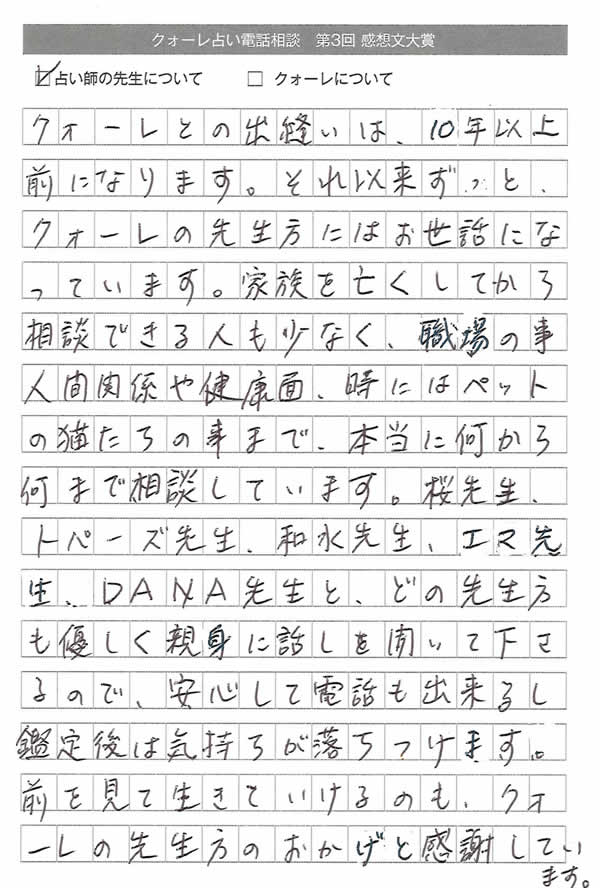 クォーレ占い電話相談 第3回 感想文大賞
☑占い師の先生について □ クォーレについて
クォーレとの出縫いは、10年以上
前になります。それ以来ずっと、
クォーレの先生方にはお世話にな
っています。家族を亡くしてから
相談できる人も少なく、職場の事
人間関係や健康面、時にはペット
の猫たちの事まで、本当に何から
何まで相談しています。桜先生、
トパーズ先生、和水先生、エマ先
生、DANA先生と、どの先生方
も優しく親身に話しを聞いて下さ
るので、安心して電話も出来るし
鑑定後は気持ちが落ちつけます。
前を見て生きていけるのも、クォ
ーレの先生方のおかげと感謝してい
ます。